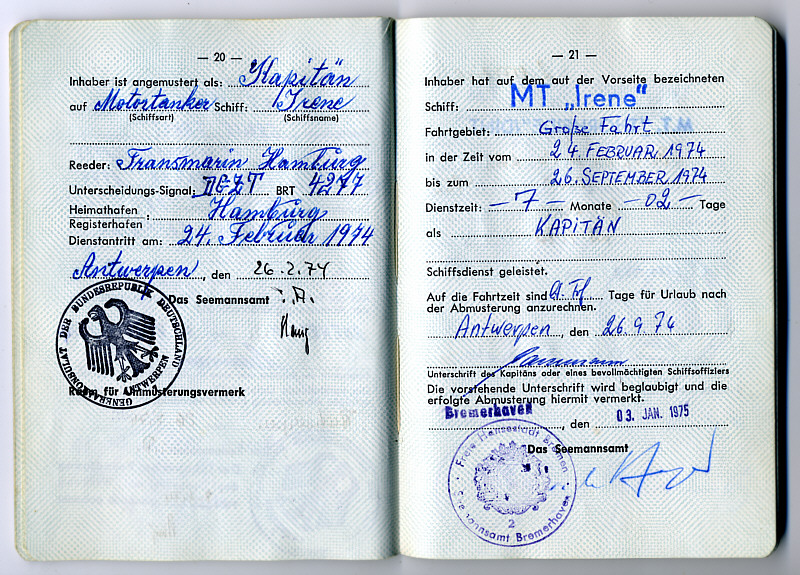 — 20 —
Inhaber ist angemustert als: Kapitän
auf Motortanker Schiff: Irene
(Schiffsart) (Schiffsname)
Reeder: Transmarin Hamburg
Unterscheidungs-Signal: DEZT BRT 4277
Heimathafen : Hamburg
Registerhafen
Dienstantritt am: 24. Februar 1974
Antwerpen, den 26.2.74
Das Seemannsamt
GENERALKONSULAT DER BUNDESREPUBLIK DEUTSCHLAND
ANTWERPEN
Raum für Anmusterungsvermerk
— 21 —
Inhaber hat auf dem auf der Vorseite bezeichneten
Schiff: MT „Irene"
Fahrtgebiet: Große Fahrt
in der Zeit vom 24. FEBRUAR 1974
bis zum 26. SEPTEMBER 1974
Dienstzeit: — 7 — Monate — 02 — Tage
als KAPITÄN
Schiffsdienst geleistet.
Auf die Fahrtzeit sind Tage für Urlaub nach
der Abmusterung anzurechnen.
Antwerpen, den 26.9.74
Unterschrift des Kapitäns oder eines bevollmächtigten Schiffsoffiziers
Die vorstehende Unterschrift wird beglaubigt und die
erfolgte Abmusterung hiermit vermerkt.
Bremerhaven, den 03. JAN. 1975
Das Seemannsamt
Freie Hansestadt Bremen
Seemannsamt Bremerhaven
2